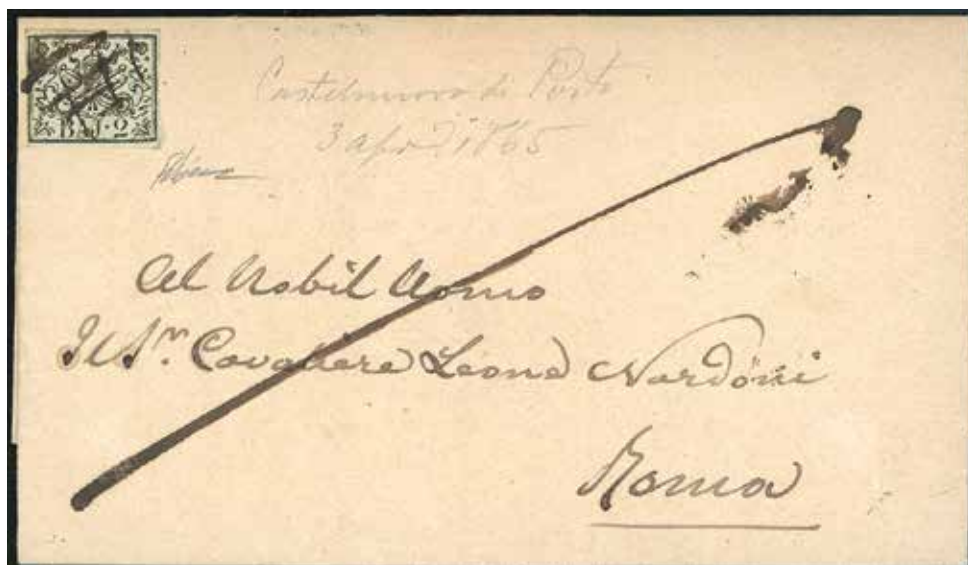 BAJ. 2
Castelnuovo di Porto
3 apr. 1865
Al Nobil Uomo
Il Sr. Cavaliere Leone Nardoni
Roma